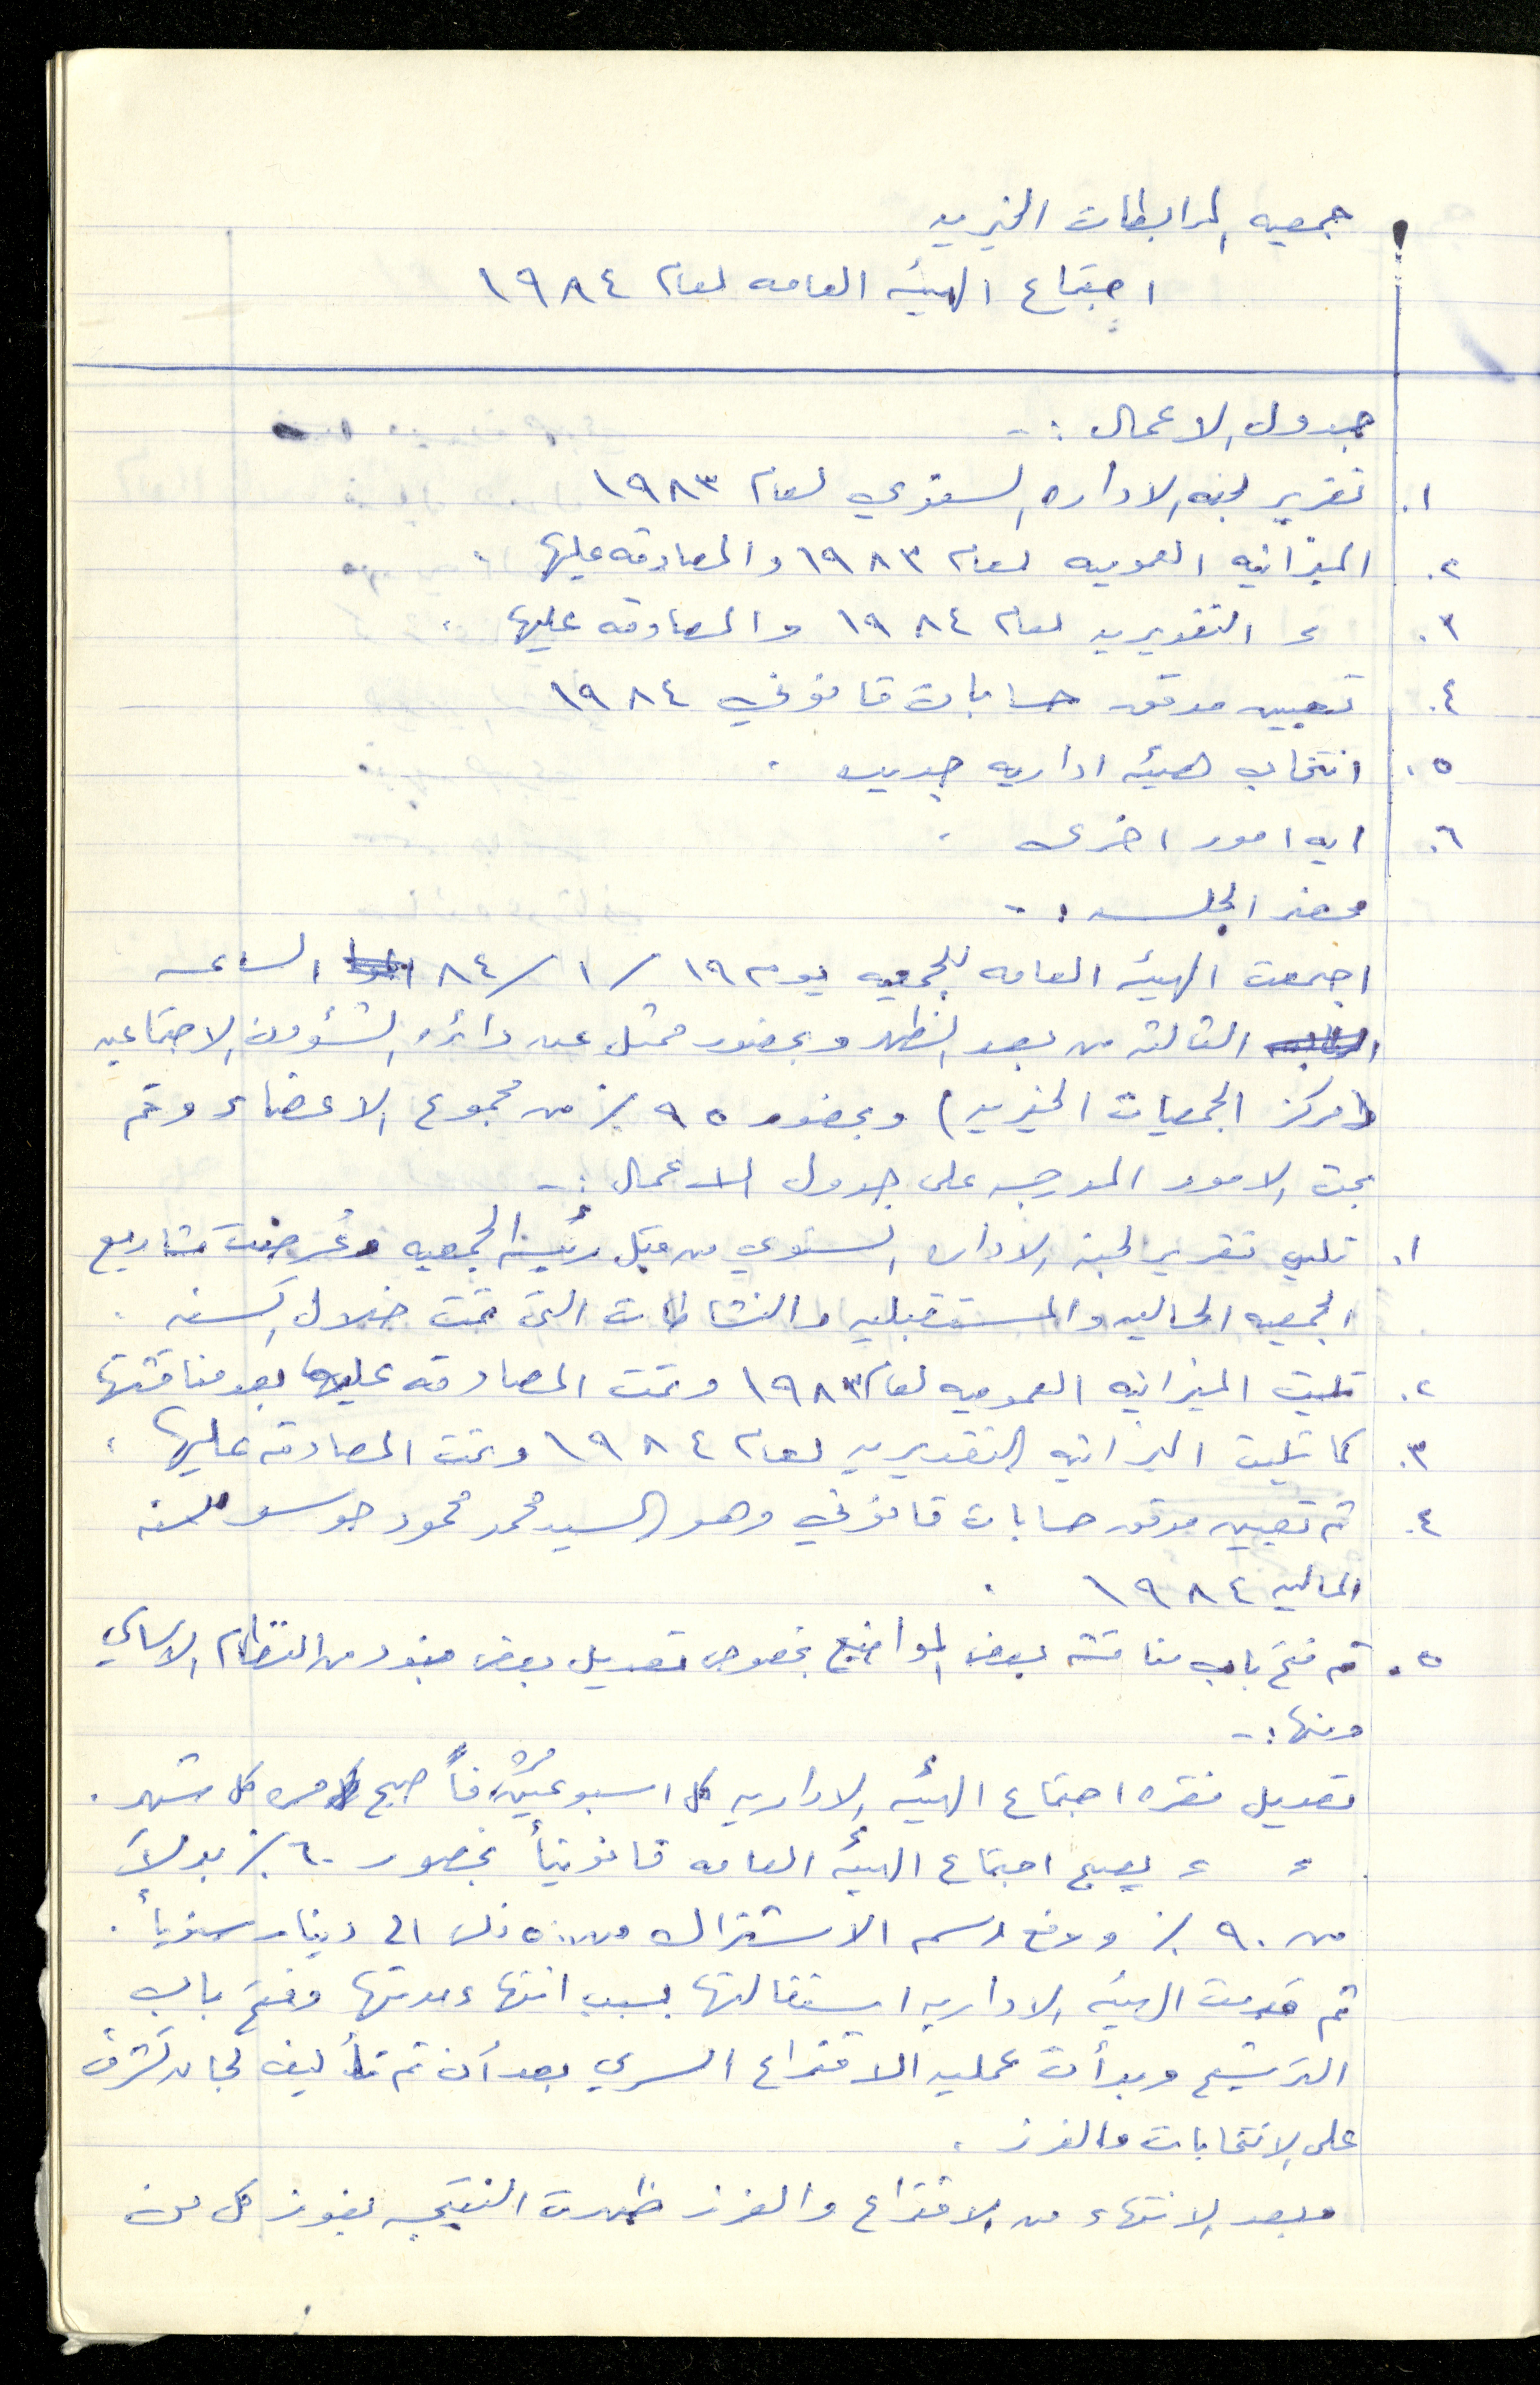 جمعيه المرابطات الخيريه
اجتماع الهيئه العامه لعام ١٩٨٤
جدول الاعمال :-
١. تقرير لجنه الاداره السنوي لعام ١٩٨٣
٢. الميزانيه العموميه لعام ١٩٨٣ والمصادقه عليها .
٣. ء التقديريه لعام ١٩٨٤ والمصادقه عليها .
٤. تعيين مدقق حسابات قانوني ١٩٨٤
٥. انتخاب هيئه اداريه جديده .
٦. ايه امور اخرى .
محضر الجلسه :-
اجتمعت الهيئه العامه للجمعيه يوم ١٩/١/٨٤ الساعه
الثالثه من بعد الظهر وبحضور ممثل عن دائره الشؤون الاجتماعيه
(مركز الجمعيات الخيريه) وبحضور ٩٥٪ من مجموع الاعضاء وتم
بحث الامور المدرجه على جدول الاعمال :-
١. تلي تقرير لجنه الاداره السنوي من قبل رئيسة الجمعيه وعُرضت مشاريع
الجمعيه الحاليه والمستقبليه والنشاطات التي تمت خلال السنه .
٢. تليت الميزانيه العموميه لعام ١٩٨٣ وتمت المصادقه عليها بعد مناقشتها
٣. كما تليت الميزانيه التقديريه لعام ١٩٨٤ وتمت المصادقه عليها .
٤. تم تعيين مدقق حسابات قانوني وهو السيد محمد محمود موسى للسنه
الماليه ١٩٨٤ .
٥. تم فتح باب مناقشه بعض المواضيع بخصوص تعديل بعض بنود من النظام الاساسي
ومنها :-
تعديل فقره اجتماع الهيئه الاداريه كل اسبوعين فأصبح مره كل شهر .
ء ء يصبح اجتماع الهيئه العامه قانونياً بحضور ٦٠٪ بدلاً
من ٩٠٪ ورفع رسم الاشتراك من ٥٠٠ فلس الى دينار سنوياً .
ثم قدمت الهيئه الاداريه استقالتها بسبب انتهاء مدتها وفتح باب
الترشيح وبدأت عمليه الاقتراع السري بعد أن تم تأليف لجان تشرف
على الانتخابات والفرز .
وبعد الانتهاء من الاقتراع والفرز ظهرت النتيجه بفوز كل من